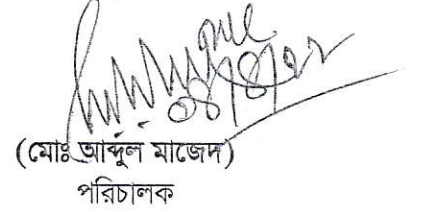 (মোঃ আব্দুল মাজেদ)
পরিচালক